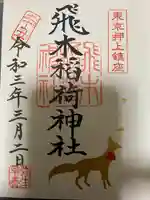 東京押上鎮座
飛木稲荷神社
令和三年三月二日